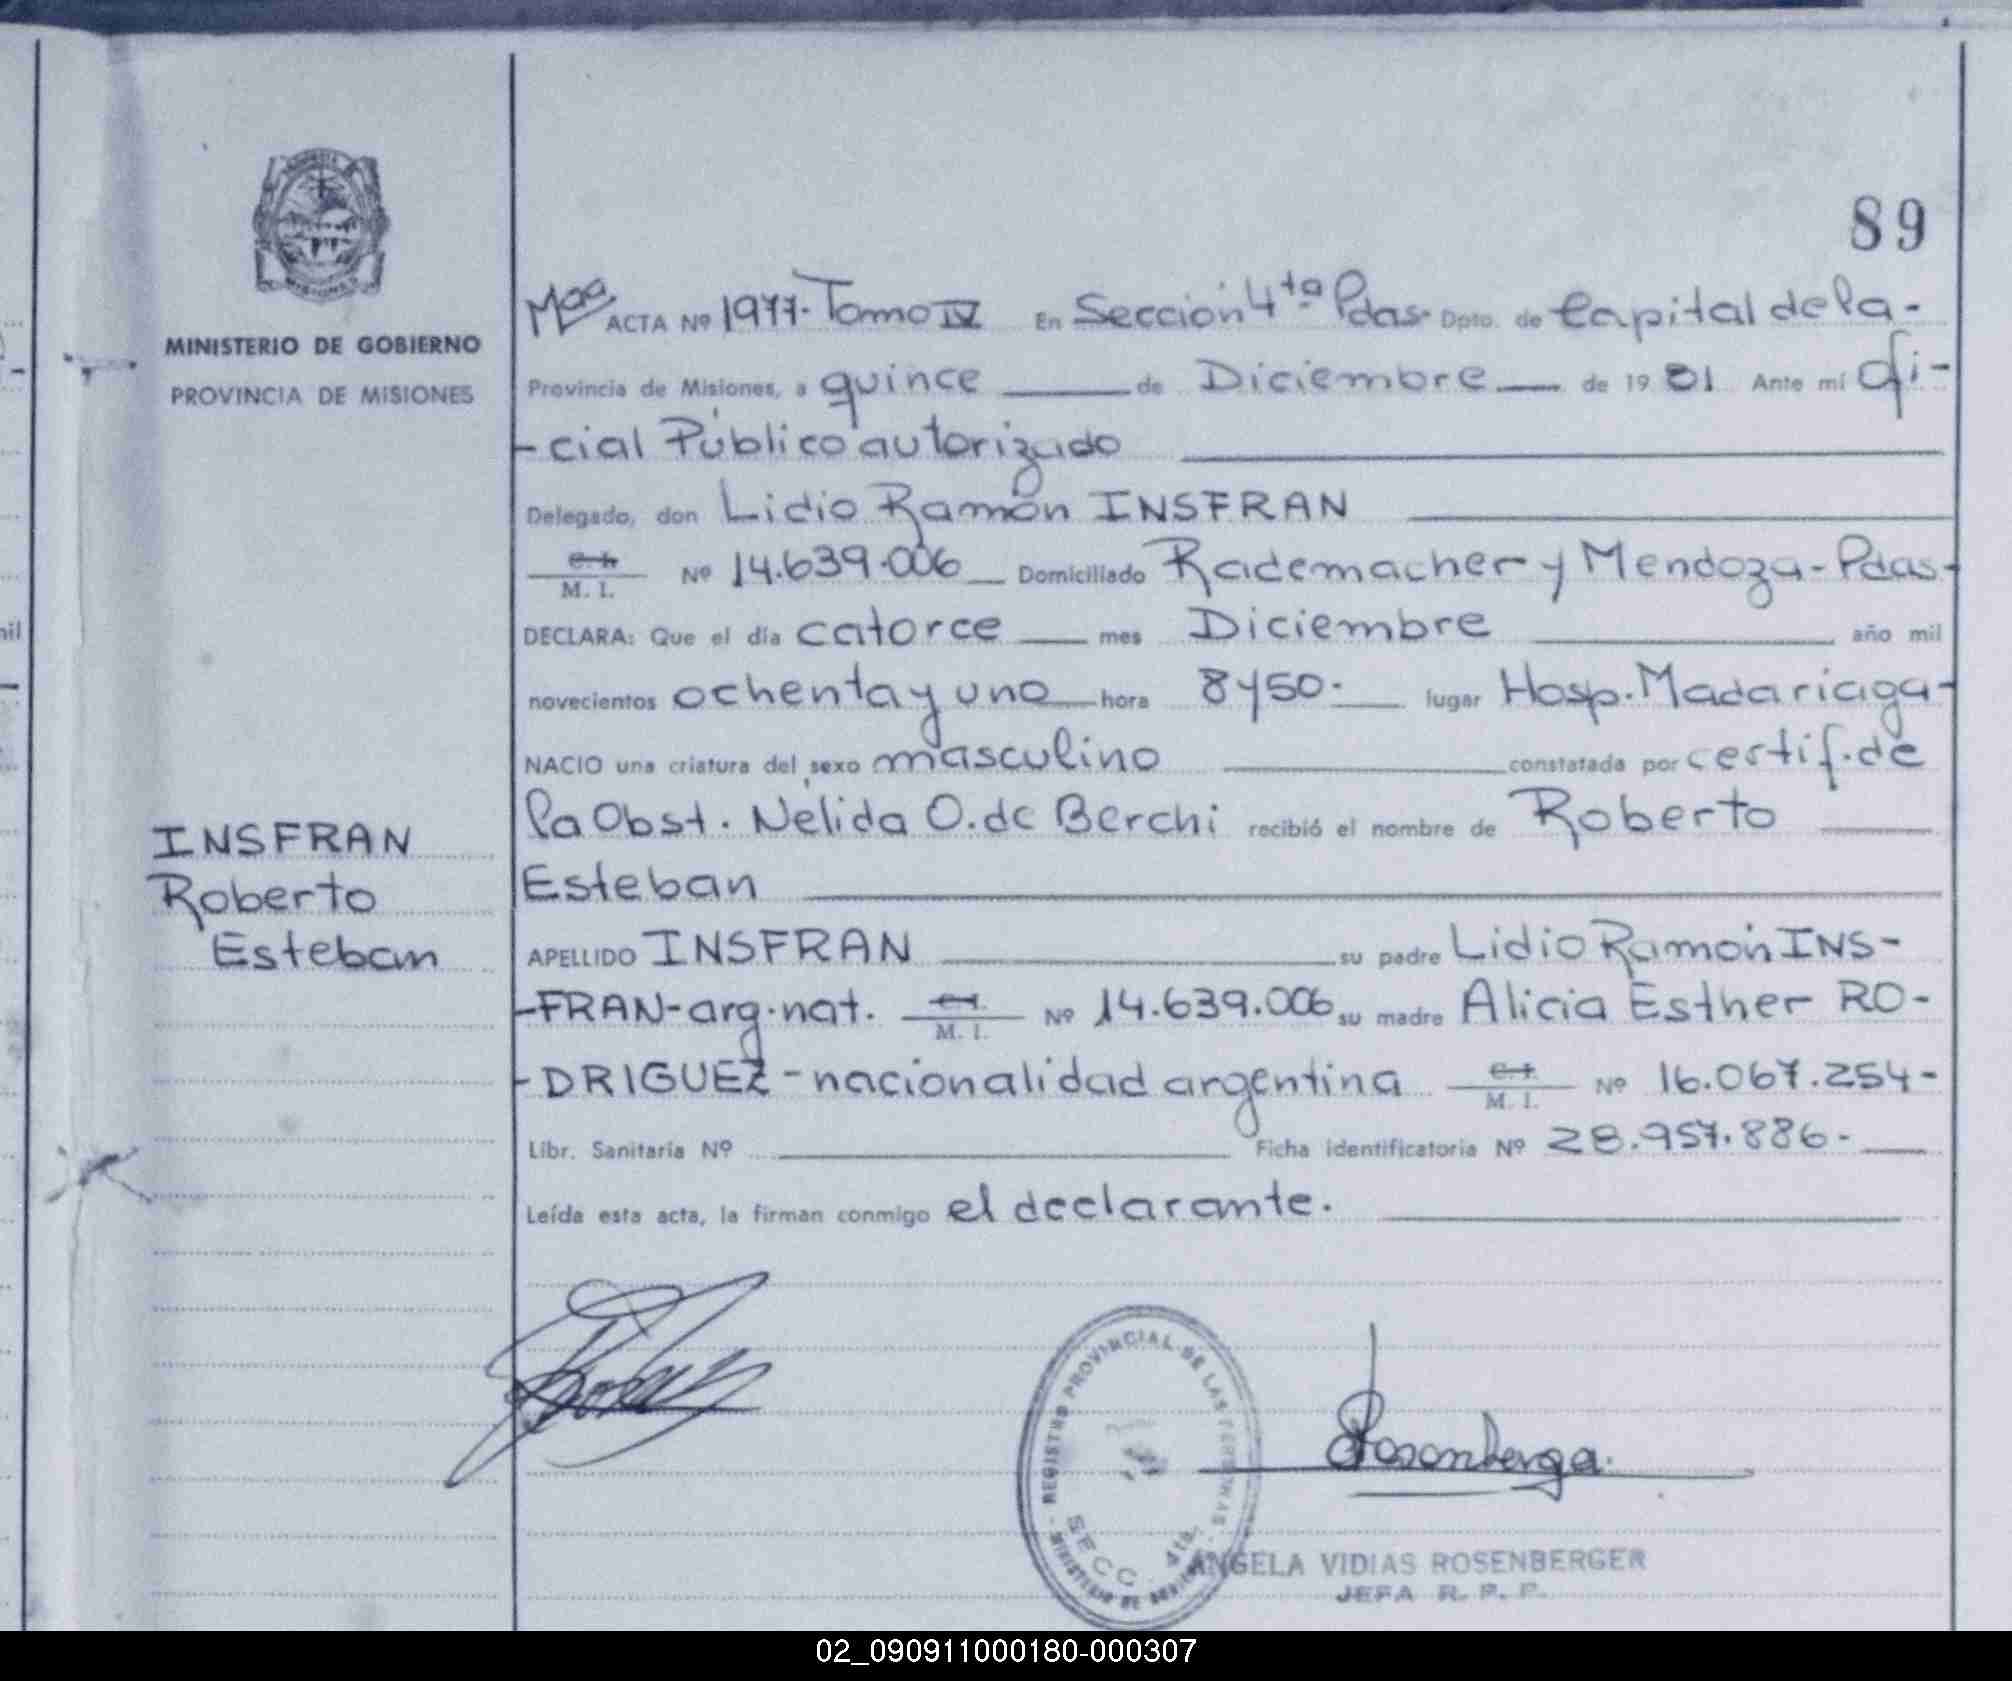 89
MINISTERIO DE GOBIERNO
PROVINCIA DE MISIONES
ACTA Nº 1977. Tomo IV En Sección 4ta Pdas. Dpto. de Capital de la-
Provincia de Misiones, a quince de Diciembre de 1981 Ante mí Ofi-
-cial Público autorizado
Delegado, don Lidio Ramón INSFRAN
M. I. Nº 14.639.006 Domiciliado Rademacher y Mendoza-Pdas-
DECLARA: Que el día catorce mes Diciembre año mil
novecientos ochenta y uno hora 8 y 50. lugar Hosp. Madariaga-
NACIO una criatura del sexo masculino constatada por certif. de
la Obst. Nélida O. de Berchi recibió el nombre de Roberto
Esteban
APELLIDO INSFRAN su padre Lidio Ramón INS-
-FRAN-arg. nat. M. I. Nº 14.639.006 su madre Alicia Esther RO-
-DRIGUEZ-nacionalidad argentina M. I. Nº 16.067.254-
Libr. Sanitaria Nº Ficha identificatoria Nº 28.957.886-
Leída esta acta, la firman conmigo el declarante.
INSFRAN
Roberto
Esteban
REGISTRO PROVINCIAL DE LAS PERSONAS
MINISTERIO DE GOBIERNO
SECC. 4ta.
ANGELA VIDIAS ROSENBERGER
JEFA R. P. P.
02_090911000180-000307